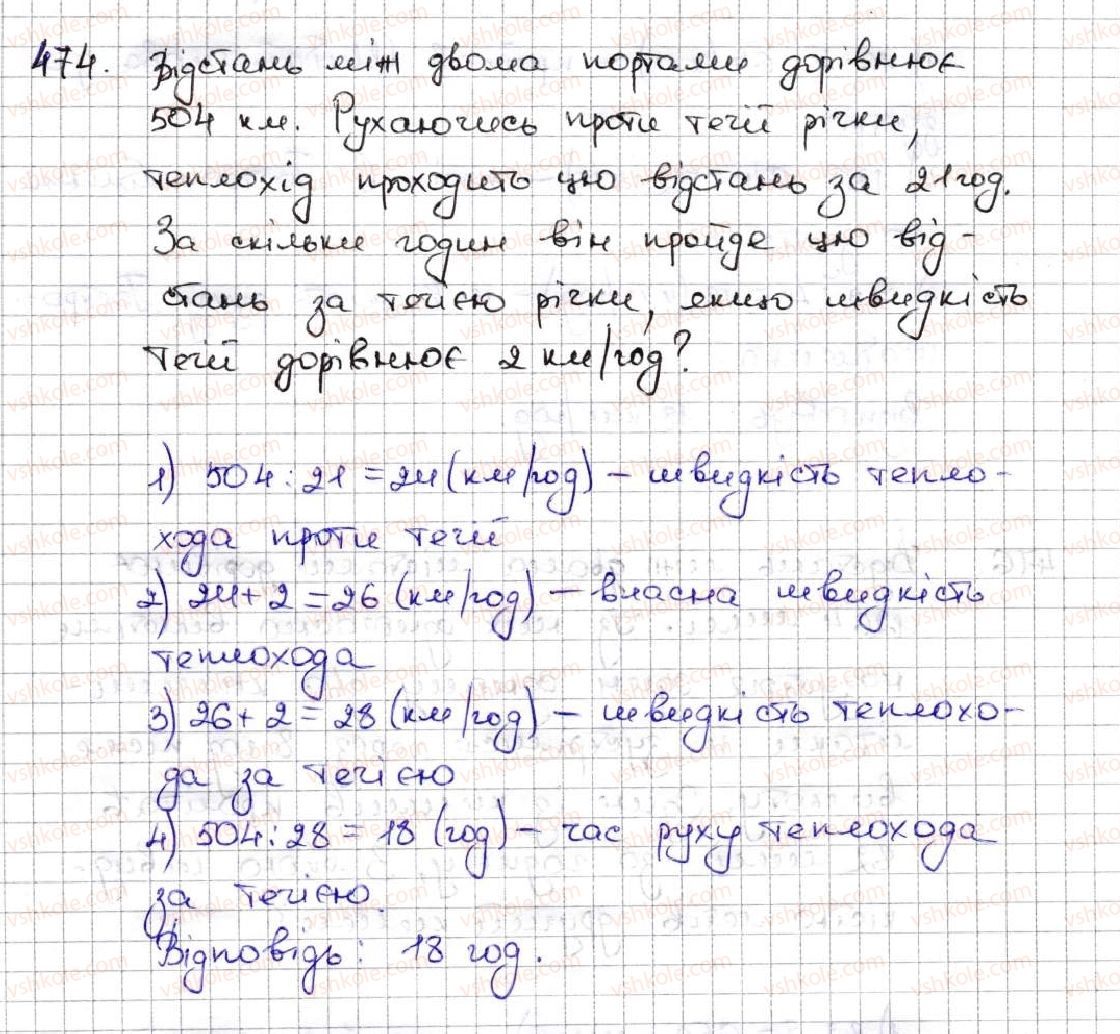 474. Відстань між двома портами дорівнює
504 км. Рухаючись проти течії річки,
теплохід проходить цю відстань за 21 год.
За скільки годин він пройде цю від-
стань за течією річки, якщо швидкість
течії дорівнює 2 км/год?
1) 504 : 21 = 24 (км/год) – швидкість тепло-
хода проти течії
2) 24 + 2 = 26 (км/год) – власна швидкість
теплохода
3) 26 + 2 = 28 (км/год) – швидкість теплохо-
да за течією
4) 504 : 28 = 18 (год) – час руху теплохода
за течією.
Відповідь: 18 год.
vshkole.com